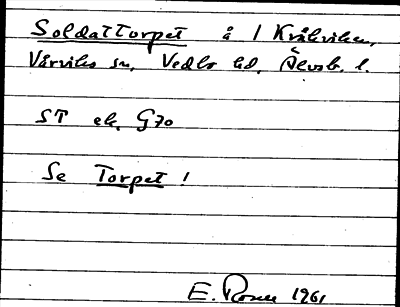 Soldattorpet å 1 Kråkviken,
Vårviks sn, Vedbo hd, Älvsb. l.
ST ek. G70
Se Torpet !
E. 1961